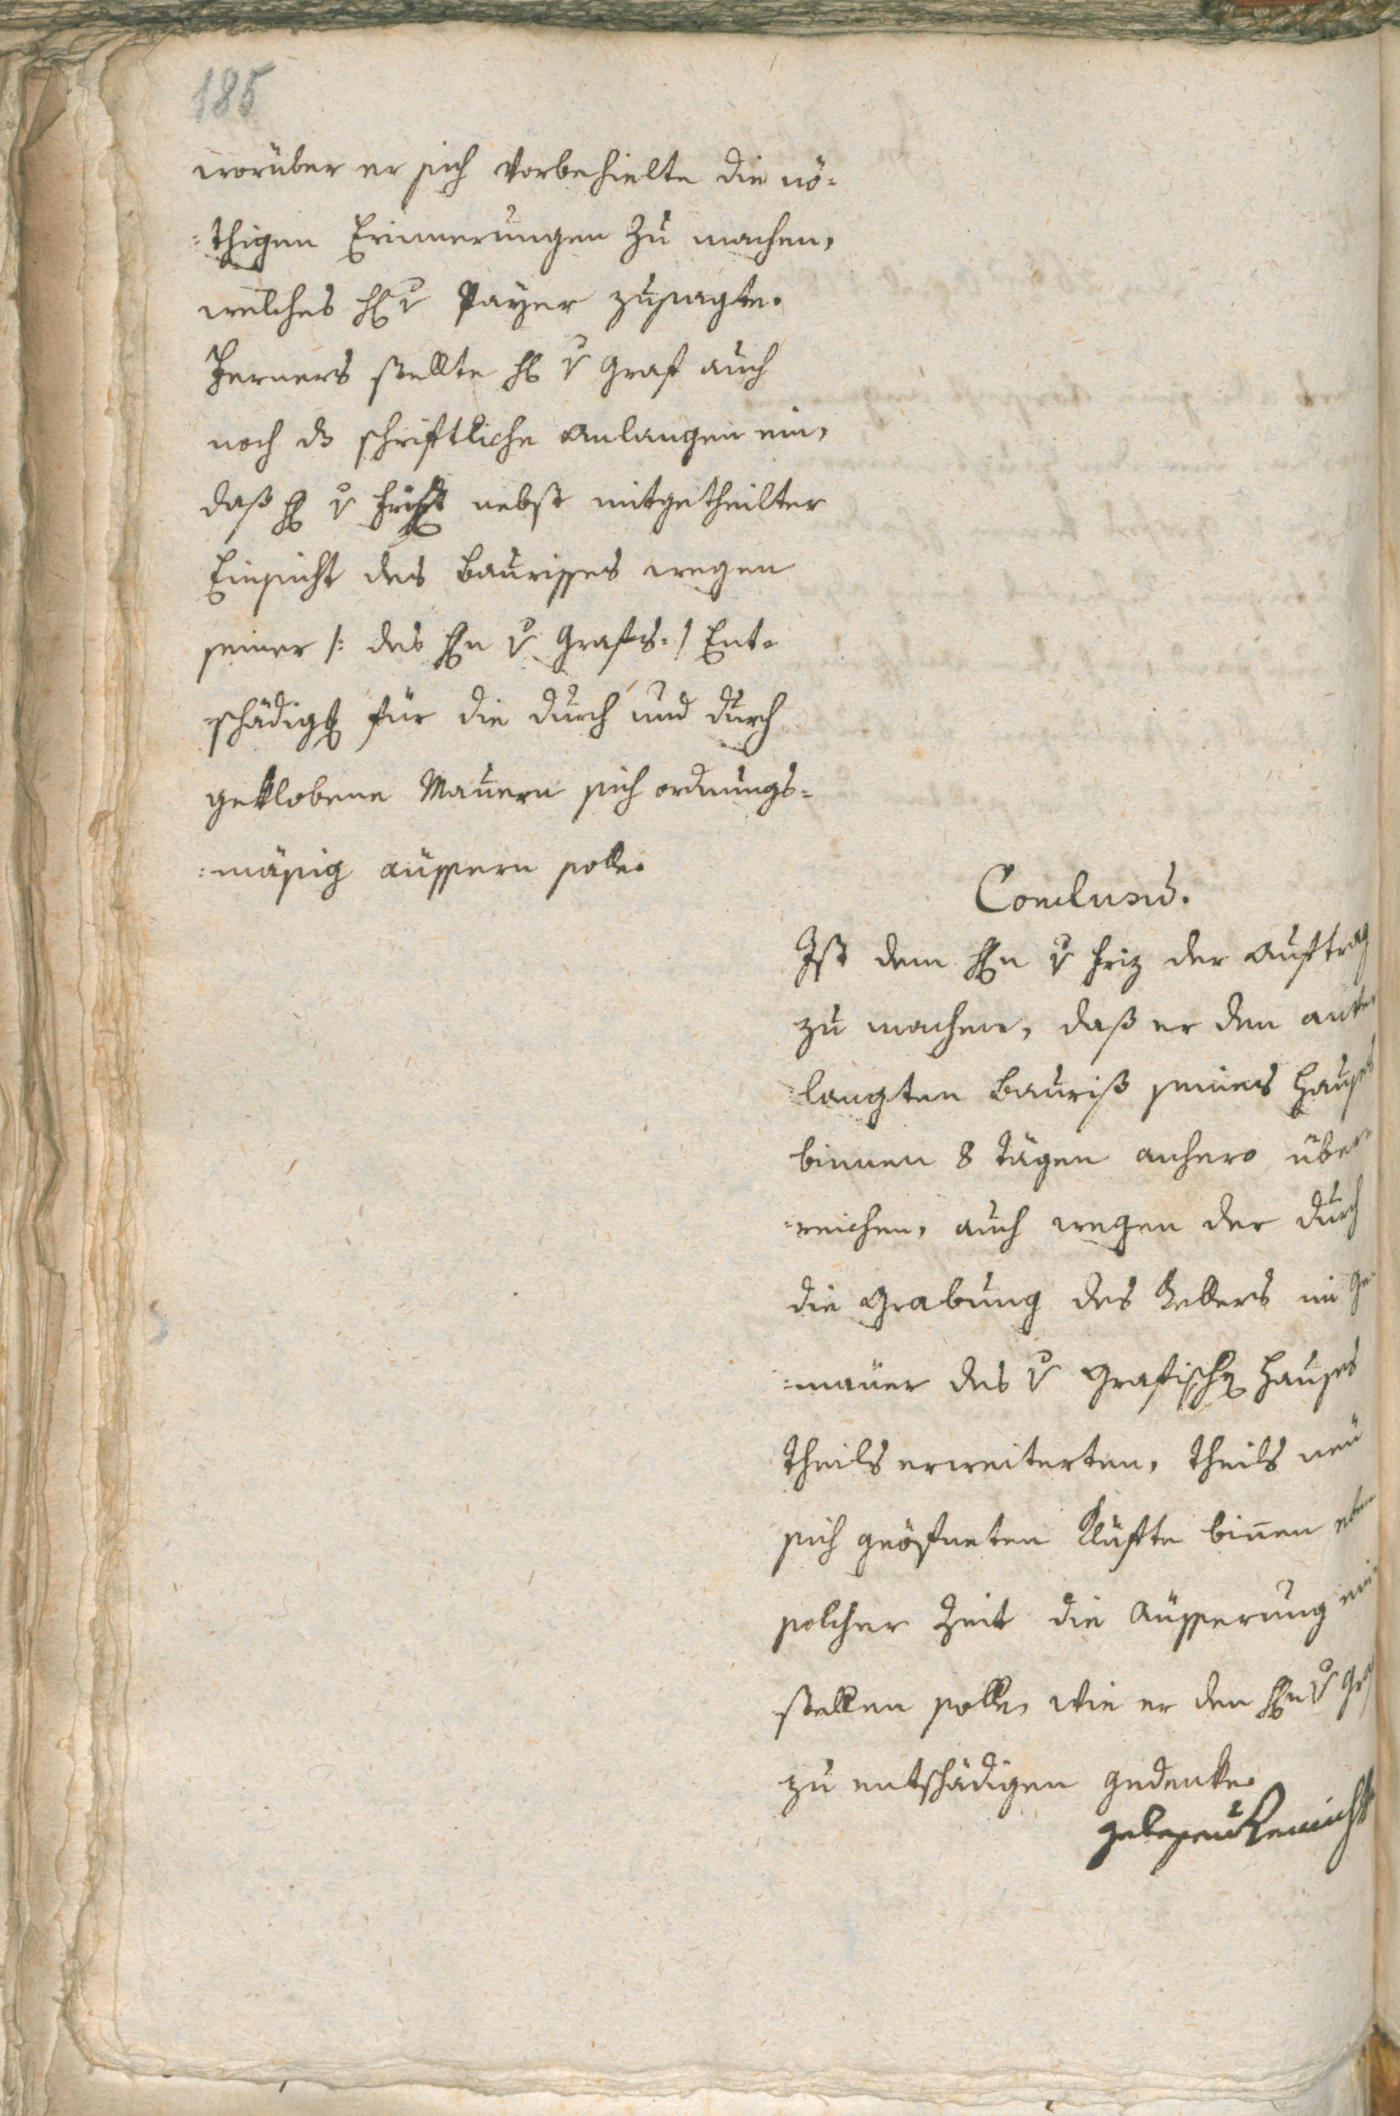 185
worüber er sich vorbehielte die nö-
=thigen Erinnerungen zu machen,
welches H v Payer zusagte.
Ferners stellte H v Graf auch
noch ds schriftliche Anlangen ein,
daß H v nebst mitgetheilter
Einsicht des Baurisses wegen
seiner /: des Hn v Grafs :/ Ent-
schädigg für die durch und durch
geklobene Mauern sich ordnungs-
=mäsig äussern solle.
Conclusū.
Ist dem Hn v Friz der Auftrag
zu machen, daß er den anver
langten Bauriß seines Hauses
binnen 8 Tägen anhero über
=reichen, auch wegen der durch
die Grabung des Kellers im Ge
=mäuer des v Grafischen Hauses
theils erweiterten, theils neu
sich geöfneten Klüfte binnen eben
solcher Zeit die Äusserung ein
stellen solle, wie er den Hn v Graf
zu entschädigen gedenke.